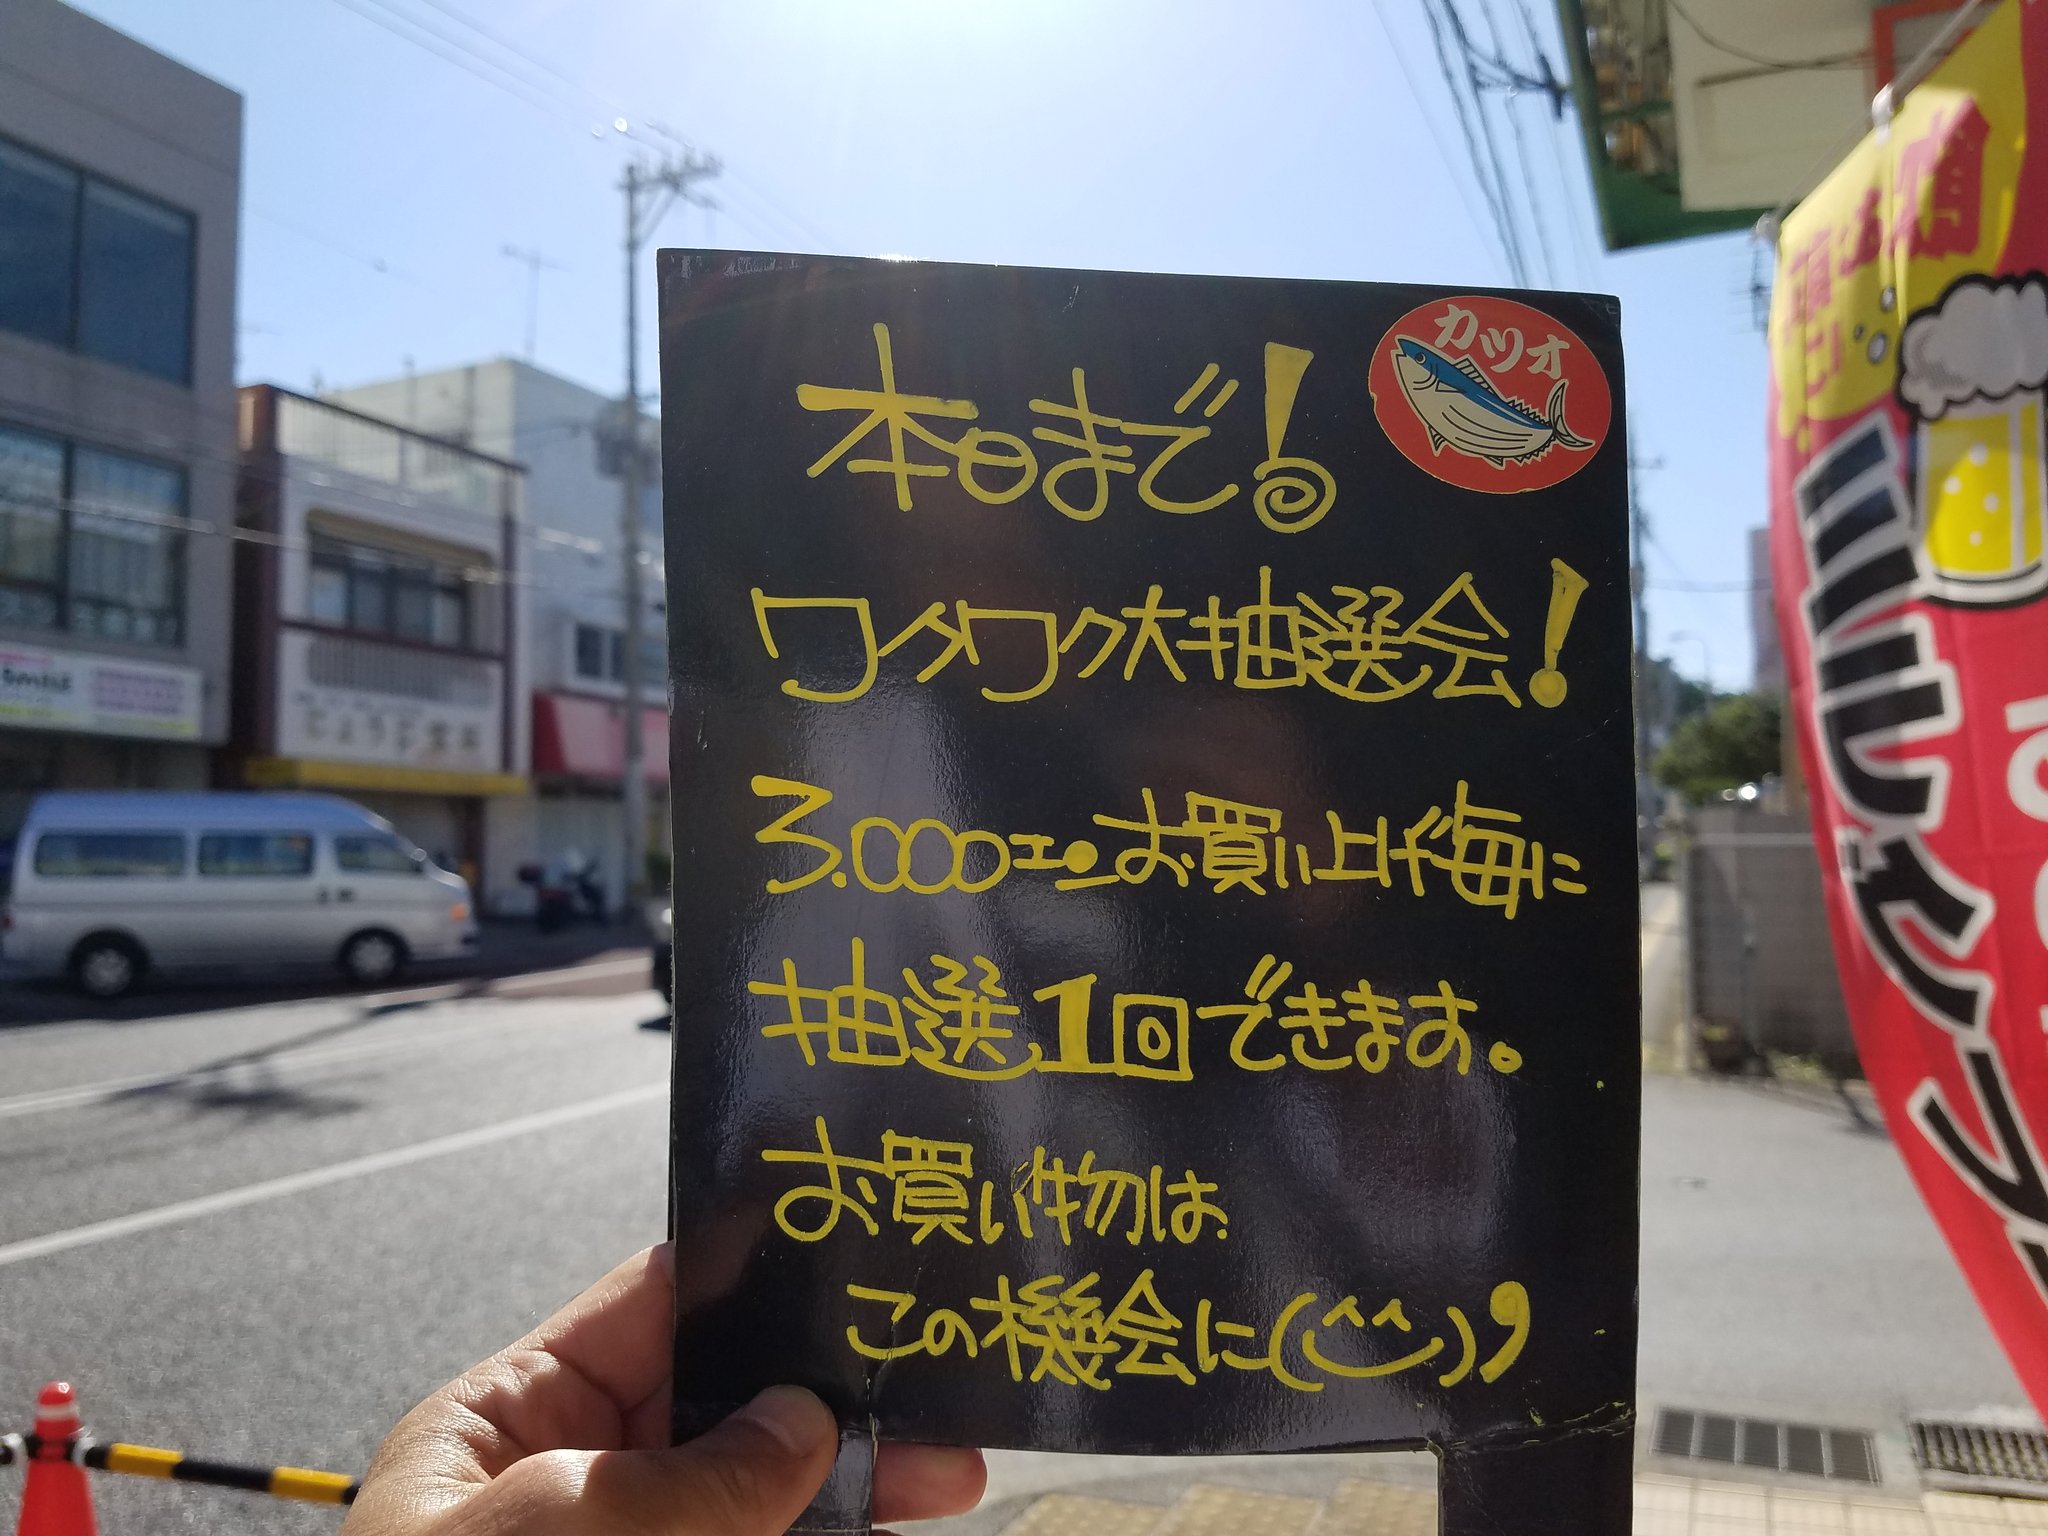 カツオ
本日まで!
ワクワク大抽選会!
3.000エン お買い上げ毎に
抽選1回できます。
お買い物は
この機会に(^^)
Smile